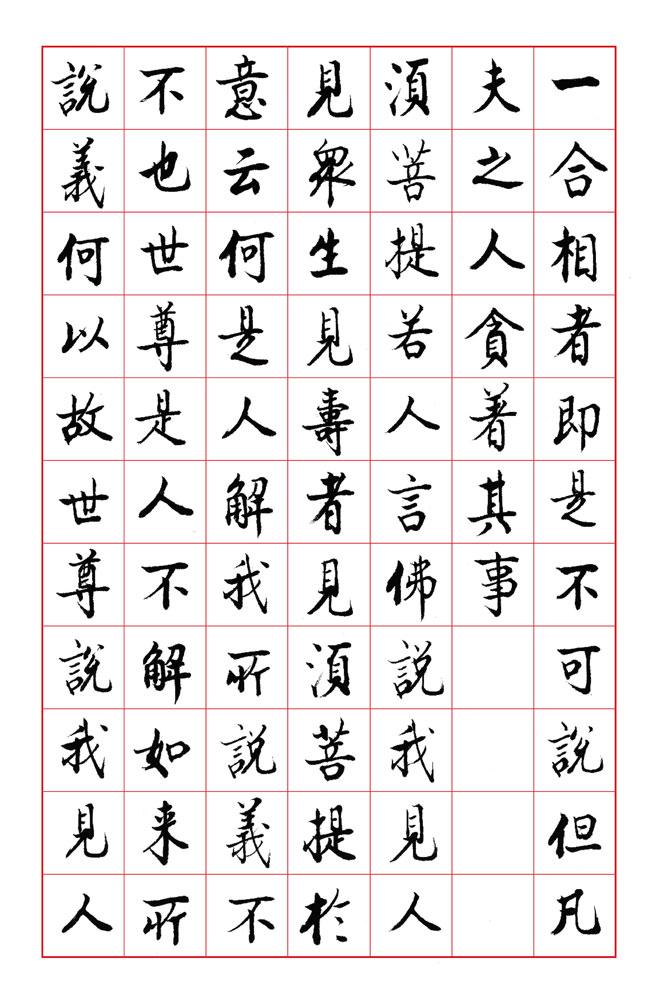 一合相者即是不可說但凡
夫之人貪著其事
須菩提若人言佛說我見人
見眾生見壽者見須菩提於
意云何是人解我所說義不
不也世尊是人不解如来所
說義何以故世尊說我見人